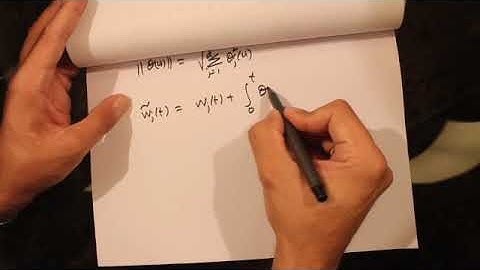 ||Θ(u)|| = √∑ⱼ₌₁ Θⱼ²(u)
w̃ⱼ(t) = wⱼ(t) + ∫₀ᵗ Θ